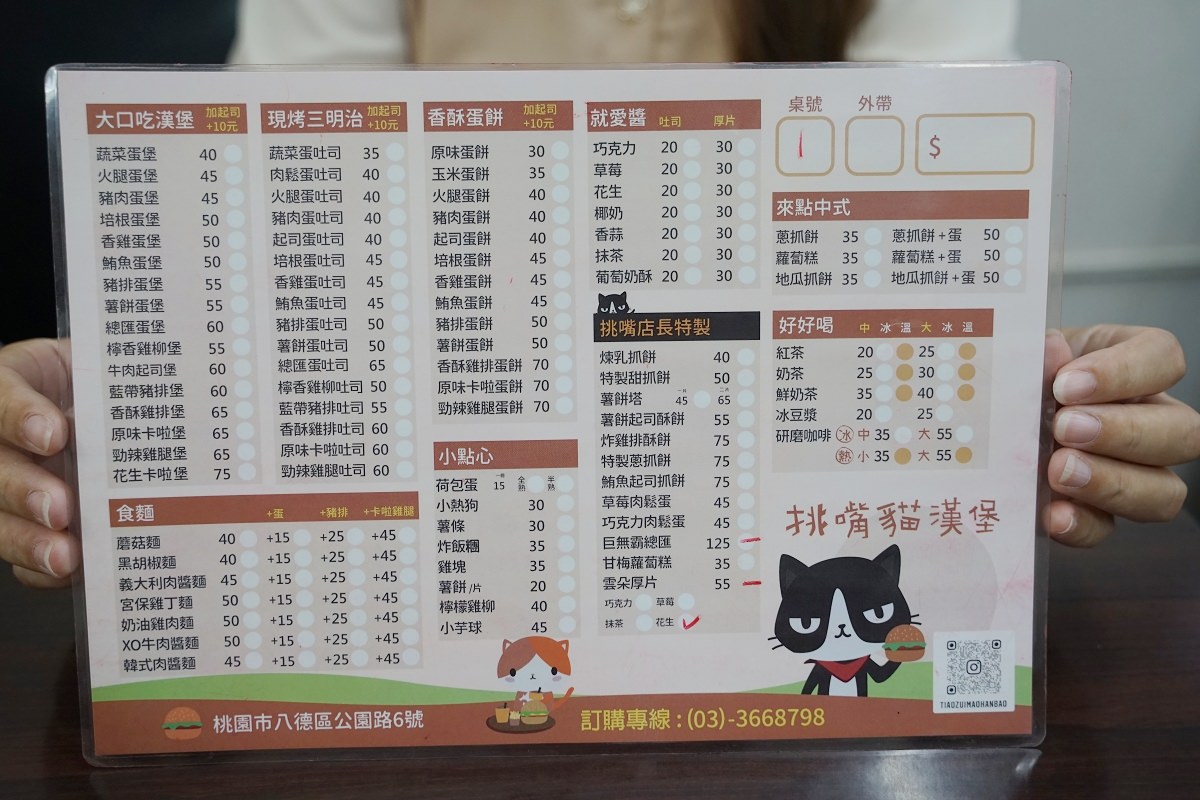 大口吃漢堡 加起司+10元
蔬菜蛋堡 40
火腿蛋堡 45
豬肉蛋堡 45
培根蛋堡 50
香雞蛋堡 50
鮪魚蛋堡 50
豬排蛋堡 55
薯餅蛋堡 55
總匯蛋堡 60
檸香雞柳堡 55
牛肉起司堡 60
藍帶豬排堡 60
香酥雞排堡 65
原味卡啦堡 65
勁辣雞腿堡 65
花生卡啦堡 75
現烤三明治 加起司+10元
蔬菜蛋吐司 35
肉鬆蛋吐司 40
火腿蛋吐司 40
豬肉蛋吐司 40
起司蛋吐司 40
培根蛋吐司 45
香雞蛋吐司 45
鮪魚蛋吐司 45
豬排蛋吐司 50
薯餅蛋吐司 50
總匯蛋吐司 65
檸香雞柳吐司 50
藍帶豬排吐司 55
香酥雞排吐司 60
原味卡啦吐司 60
勁辣雞腿吐司 60
香酥蛋餅 加起司+10元
原味蛋餅 30
玉米蛋餅 35
火腿蛋餅 40
豬肉蛋餅 40
起司蛋餅 40
培根蛋餅 45
香雞蛋餅 45
鮪魚蛋餅 45
豬排蛋餅 50
薯餅蛋餅 50
香酥雞排蛋餅 70
原味卡啦蛋餅 70
勁辣雞腿蛋餅 70
就愛醬 吐司 厚片
巧克力 20 30
草莓 20 30
花生 20 30
椰奶 20 30
香蒜 20 30
抹茶 20 30
葡萄奶酥 20 30
挑嘴店長特製
煉乳抓餅 40
特製甜抓餅 50
薯餅塔 45 65
薯餅起司酥餅 55
炸雞排酥餅 75
特製蔥抓餅 75
鮪魚起司抓餅 75
草莓肉鬆蛋 45
巧克力肉鬆蛋 45
巨無霸總匯 125
甘梅蘿蔔糕 35
雲朵厚片 55
巧克力 草莓
抹茶 花生
桌號 外帶
1 $
來點中式
蔥抓餅 35 蔥抓餅+蛋 50
蘿蔔糕 35 蘿蔔糕+蛋 50
地瓜抓餅 35 地瓜抓餅+蛋 50
好好喝 中 冰 溫 大 冰 溫
紅茶 20 25
奶茶 25 30
鮮奶茶 35 40
冰豆漿 20 25
研磨咖啡 冰 中 35 大 55
熱 小 35 大 55
食麵 +蛋 +豬排 +卡啦雞腿
蘑菇麵 40 +15 +25 +45
黑胡椒麵 40 +15 +25 +45
義大利肉醬麵 45 +15 +25 +45
宮保雞丁麵 50 +15 +25 +45
奶油雞肉麵 50 +15 +25 +45
XO牛肉醬麵 50 +15 +25 +45
韓式肉醬麵 45 +15 +25 +45
小點心
荷包蛋 一顆 15 全熟 半熟
小熱狗 30
薯條 30
炸飯糰 35
雞塊 35
薯餅/片 20
檸檬雞柳 40
小芋球 45
挑嘴貓漢堡
TIAOZUIMAOHANBAO
桃園市八德區公園路6號
訂購專線:(03)-3668798